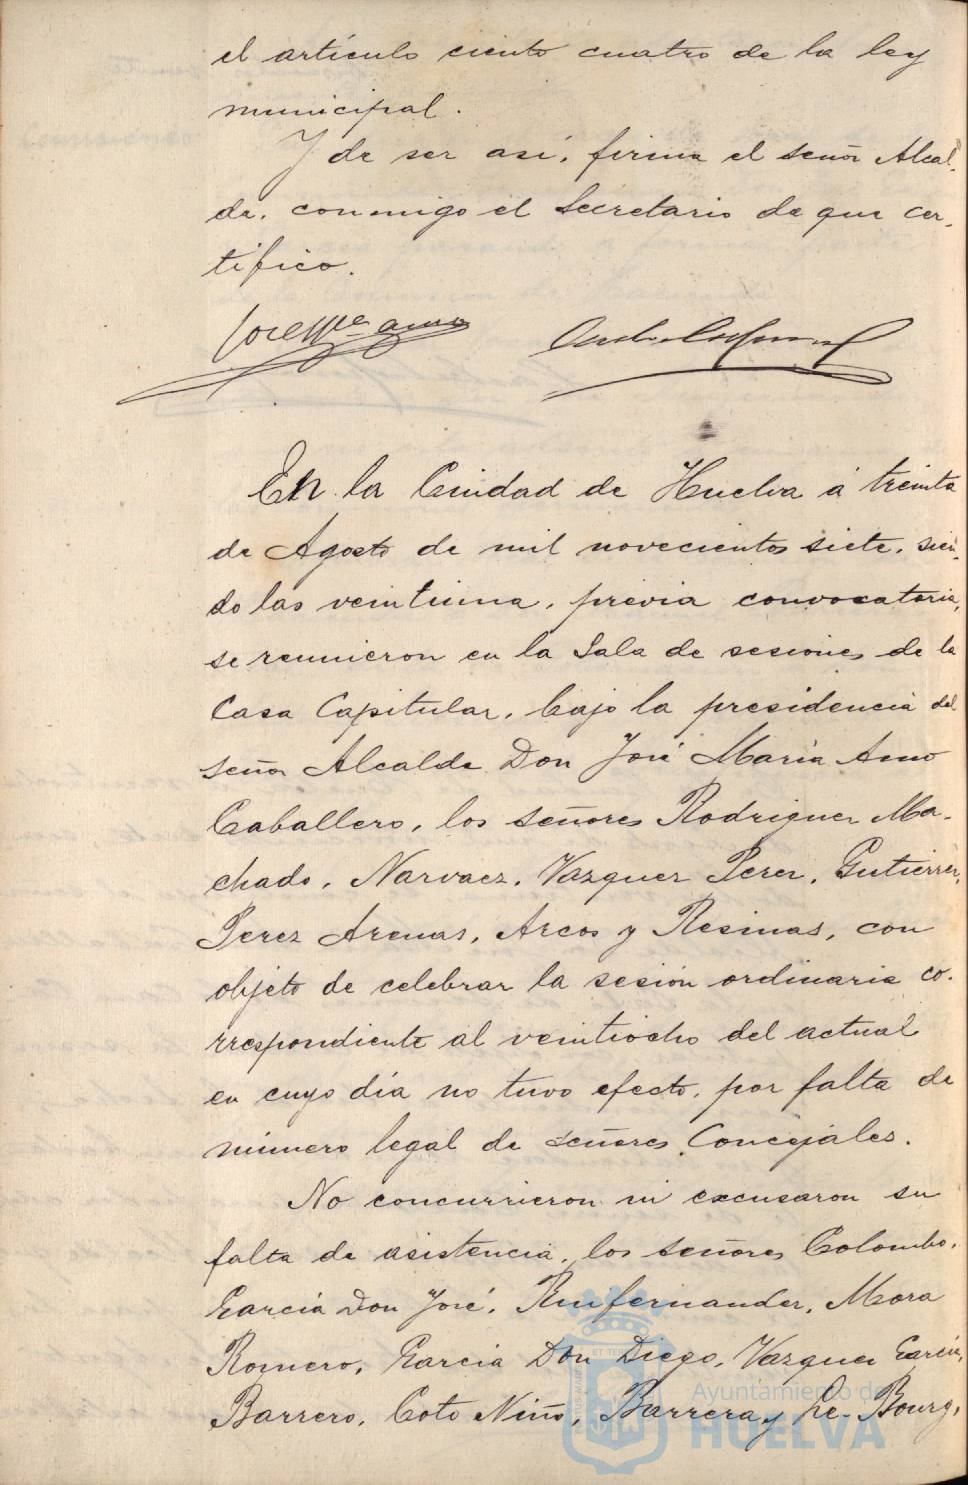 el artículo ciento cuatro de la ley
municipal.
Y de ser así, firma el señor Alcal-
de, conmigo el Secretario de que cer-
tifico.
José Mª Amo
En la Ciudad de Huelva á treinta
de Agosto de mil novecientos siete, sien-
do las veintiuna, previa convocatoria,
se reunieron en la Sala de sesiones de la
Casa Capitular, bajo la presidencia del
señor Alcalde Don José María Amo
Caballero, los señores Rodriguez Ma-
chado, Narvaez, Vazquez Perez, Gutierrez,
Perez Arenas, Arcos y Resinas, con
objeto de celebrar la sesión ordinaria co-
rrespondiente al veintiocho del actual
en cuyo día no tuvo efecto, por falta de
número legal de señores Concejales.
No concurrieron ni excusaron su
falta de asistencia, los señores Colombo,
García Don José, Ruifernandez, Mora
Romero, Garcia Don Diego, Vazquez García,
Barrero, Coto Niño, Barrera y Le-Bourg,
Ayuntamiento de
HUELVA